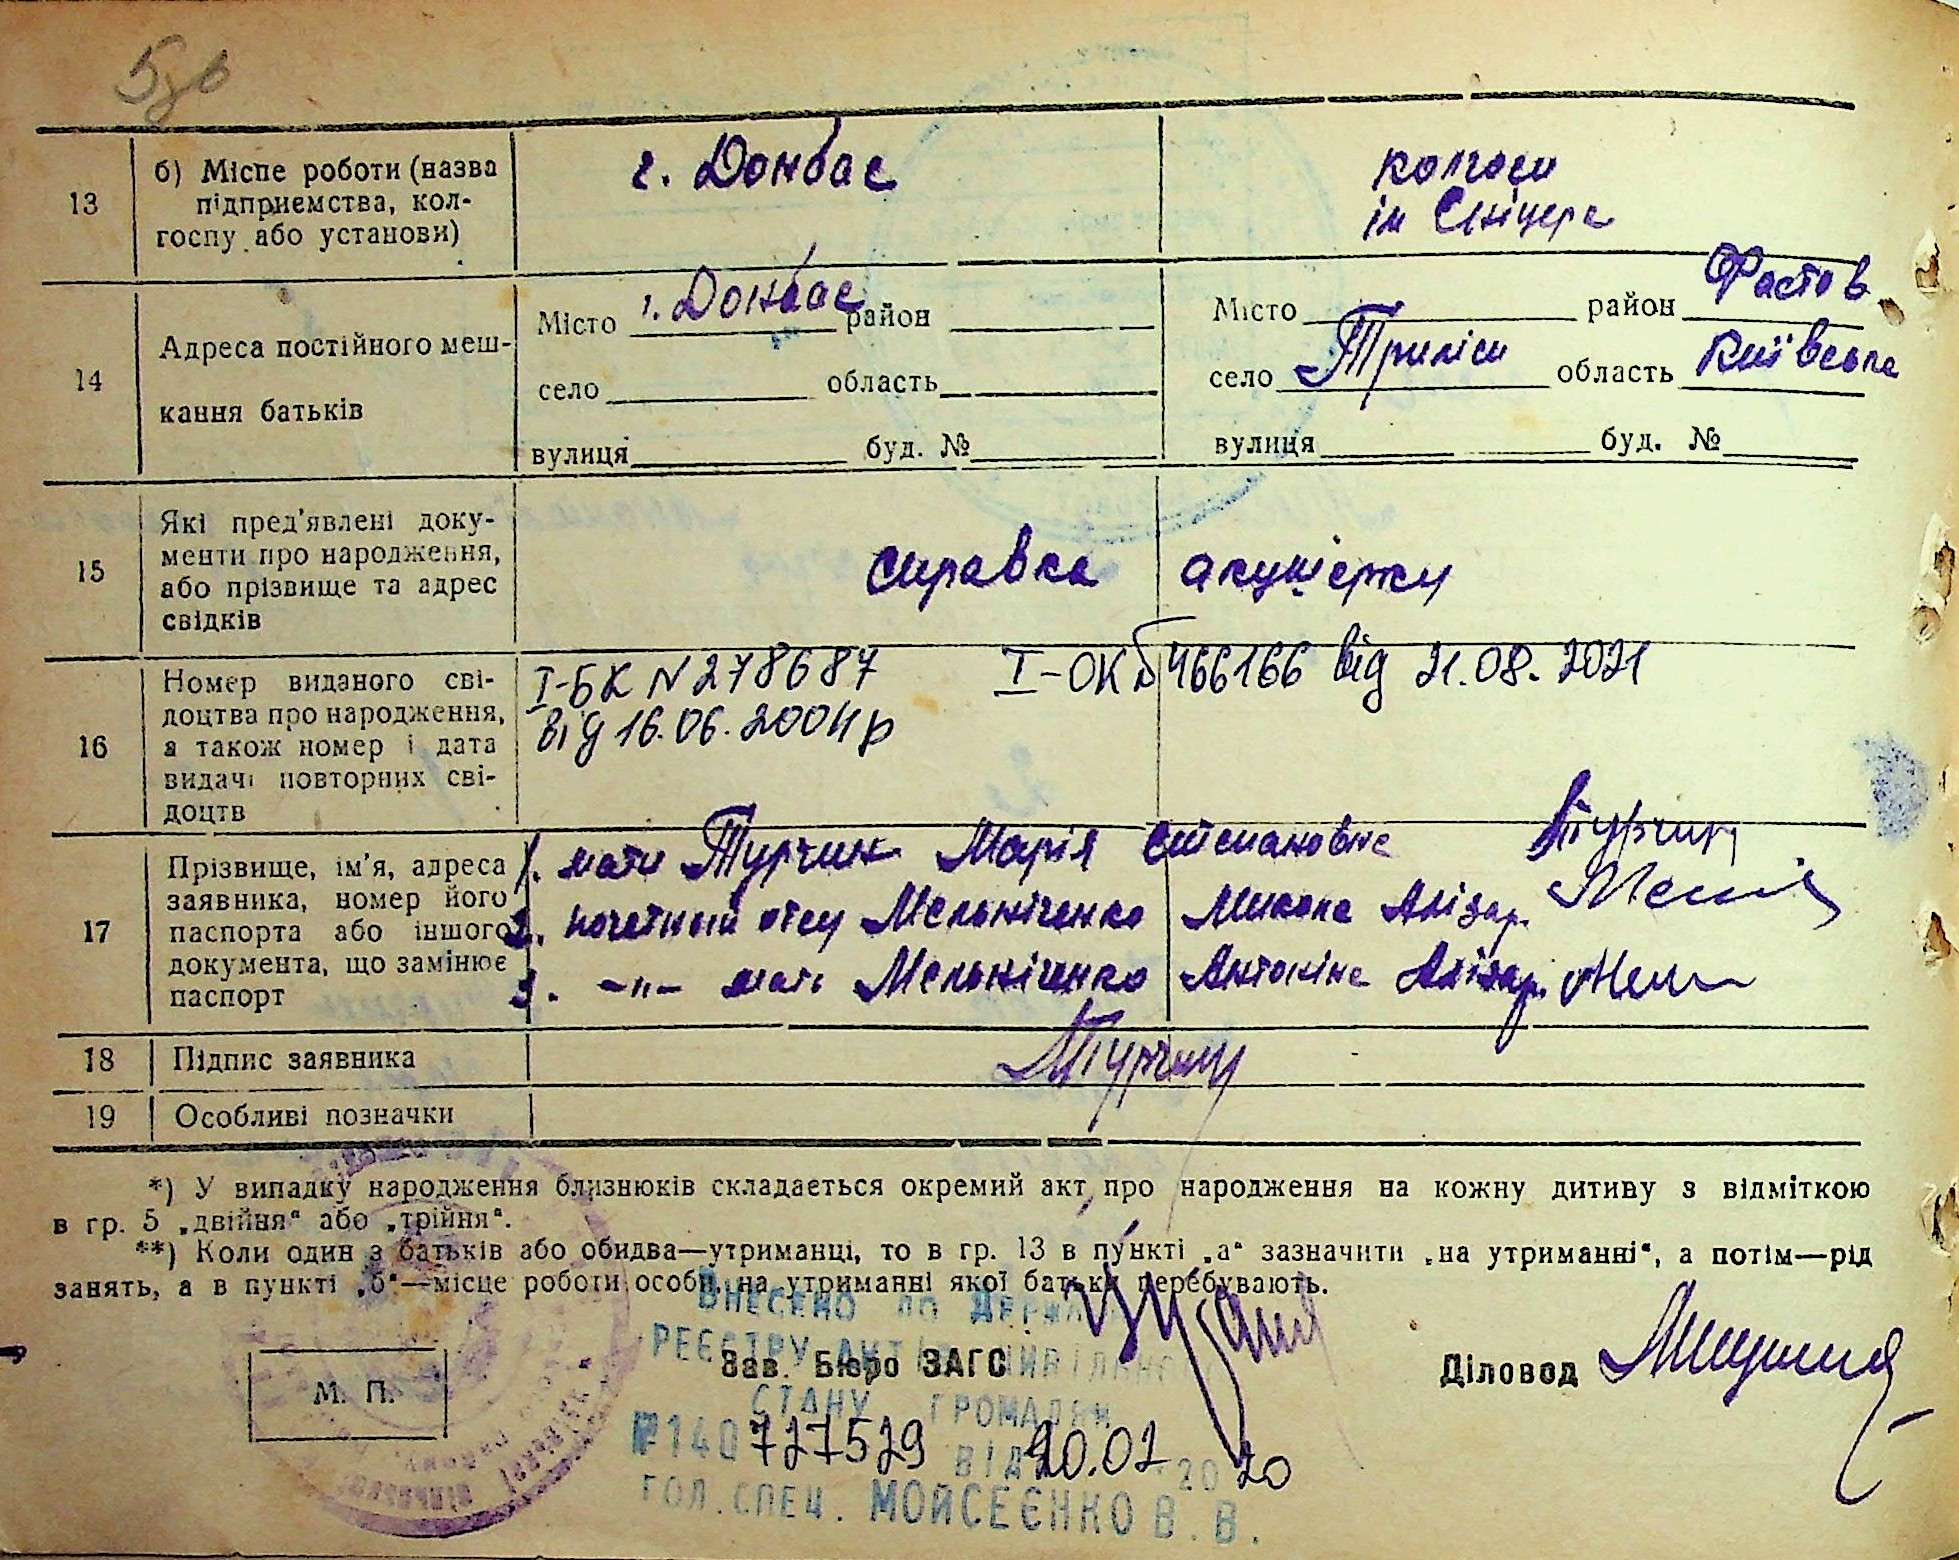 13
б) Місце роботи (назва
підприємства, кол-
госпу або установи)
г. Донбас
колгосп
ім Сніцера
14
Адреса постійного меш-
кання батьків
Місто г. Донбас район
село область
вулиця буд. №
Місто район Фастов
село Триліси область Київська
вулиця буд. №
15
Які пред'явлені доку-
менти про народження,
або прізвище та адрес
свідків
справка акушерки
16
Номер виданого сві-
доцтва про народження,
а також номер і дата
видачі повторних сві-
доцтв
I-БК N 278687
від 16.06.2004 р
I-ОК Б 466166 від 21.08.2021
17
Прізвище, ім'я, адреса
заявника, номер його
паспорта або іншого
документа, що замінює
паспорт
1. мати Турчин Марія Степановна Турчин
2. почетный отец Мельніченко Микола Алізар.
3. -"- мать Мельніченко Антоніна Алізар.
18
Підпис заявника
Турчин
19
Особливі позначки
*) У випадку народження близнюків складається окремий акт про народження на кожну дитину з відміткою
в гр. 5 „двійня“ або „трійня“.
**) Коли один з батьків або обидва—утриманці, то в гр. 13 в пункті „а“ зазначити „на утриманні“, а потім—рід
занять, а в пункті „б“—місце роботи особи, на утриманні якої батьки перебувають.
М. П.
Зав. Бюро ЗАГС
Діловод
ВНЕСЕНО ДО ДЕРЖ
РЕЄСТРУ АКТІВ ЦИВІЛЬНОГО
СТАНУ ГРОМАДЯН
№140 727529 ВІД 20.02 2020
ГОЛ. СПЕЦ. МОЙСЕЄНКО В. В.